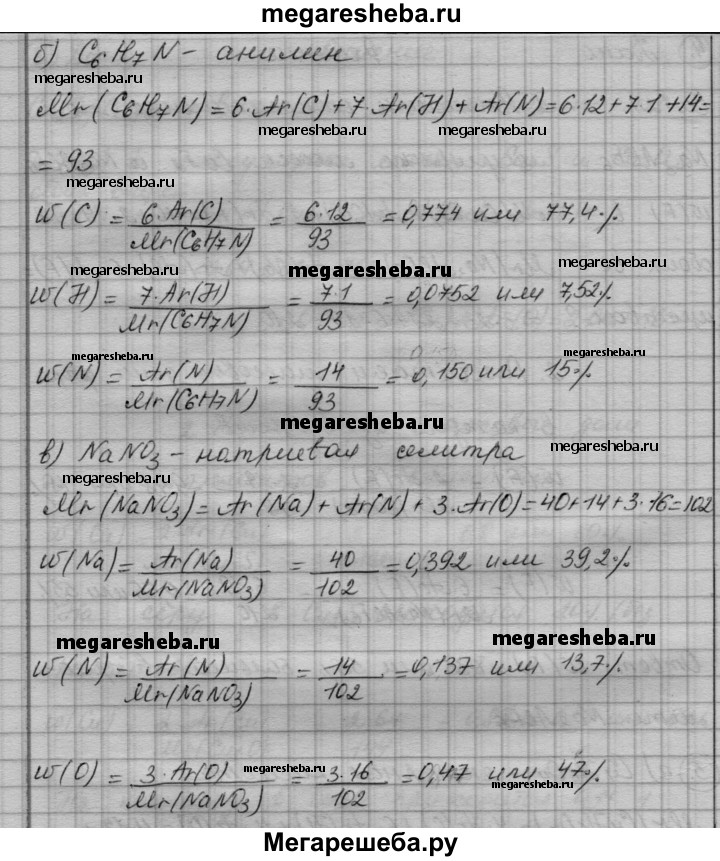 megaresheba.ru
б) C₆H₇N - анилин
megaresheba.ru megaresheba.ru
Mr(C₆H₇N) = 6·Ar(C) + 7·Ar(H) + Ar(N) = 6·12 + 7·1 + 14 =
megaresheba.ru megaresheba.ru
= 93
megaresheba.ru
w(C) = 6·Ar(C) / Mr(C₆H₇N) = 6·12 / 93 = 0,774 или 77,4%
megaresheba.ru megaresheba.ru
w(H) = 7·Ar(H) / Mr(C₆H₇N) = 7·1 / 93 = 0,0752 или 7,52%
megaresheba.ru megaresheba.ru
w(N) = Ar(N) / Mr(C₆H₇N) = 14 / 93 = 0,150 или 15%
megaresheba.ru
в) NaNO₃ - натриевая селитра
megaresheba.ru
megaresheba.ru
Mr(NaNO₃) = Ar(Na) + Ar(N) + 3·Ar(O) = 40 + 14 + 3·16 = 102
megaresheba.ru
w(Na) = Ar(Na) / Mr(NaNO₃) = 40 / 102 = 0,392 или 39,2%
megaresheba.ru megaresheba.ru
w(N) = Ar(N) / Mr(NaNO₃) = 14 / 102 = 0,137 или 13,7%
w(O) = 3·Ar(O) / Mr(NaNO₃) = 3·16 / 102 = 0,47 или 47%
megaresheba.ru megaresheba.ru
Мегарешеба.ру